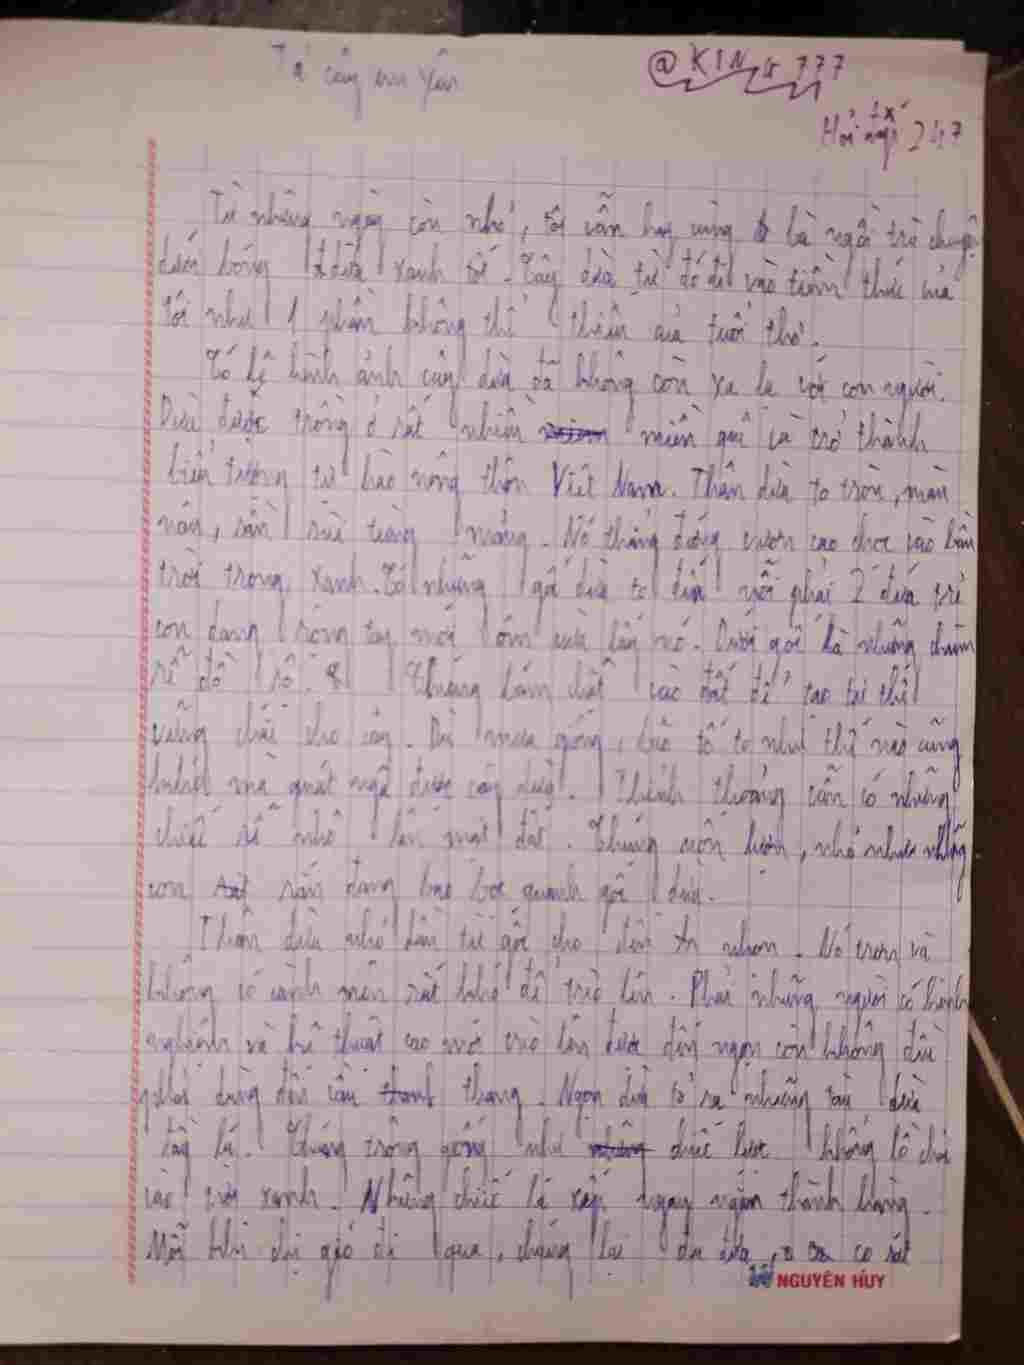 Tả cây em yêu
@KIN 777
Hỏi 1 xí 247
Từ những ngày còn nhỏ, tôi vẫn hay cùng bà ngồi trò chuyện
dưới bóng dừa xanh tốt. Cây dừa từ đó đi vào tiềm thức của
tôi như 1 phần không thể thiếu của tuổi thơ.
Có lẽ hình ảnh cây dừa đã không còn xa lạ với con người.
Dừa được trồng ở rất nhiều miền quê và trở thành
biểu tượng tự hào nông thôn Việt Nam. Thân dừa to tròn, màu
nâu, sần sùi từng mảng. Nó thẳng đứng vươn cao chọc vào bầu
trời trong xanh. Có những gốc dừa to đến nỗi phải 2 đứa trẻ
con dang rộng tay mới ôm vừa lấy nó. Dưới gốc là những chùm
rễ đồ sộ. Chúng bám chặt vào đất để tạo tư thế
vững chãi cho cây. Dù mưa giông, bão tố to như thế nào cũng
khó mà quật ngã được cây dừa. Thỉnh thoảng vẫn có những
chiếc rễ nhô lên mặt đất. Chúng uốn lượn, nhỏ như những
con rắn đang bao bọc quanh gốc dừa.
Thân dừa nhỏ dần từ gốc cho đến ngọn. Nó trơn và
không có cành nên rất khó để trèo lên. Phải những người có kinh
nghiệm và kĩ thuật cao mới trèo lên được đến ngọn còn không đều
phải dùng đến cầu thang. Ngọn dừa tỏa ra những tàu dừa
lá. Chúng trông giống như chiếc lược khổng lồ chải
vào trời xanh. Những chiếc lá xếp ngay ngắn thành hàng.
Mỗi khi chị gió đi qua, chúng lại đu đưa, cọ sát
NGUYÊN HUY